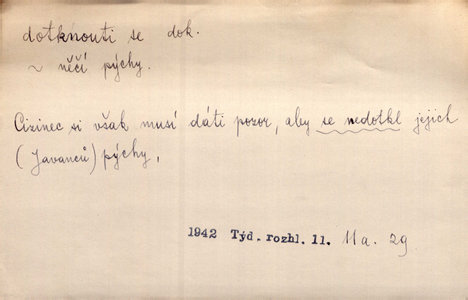 dotknouti se dok.
~ něčí pýchy.
Cizinec si však musí dáti pozor, aby se nedotkl jejich
(Javanců) pýchy,
1942 Týd. rozhl. 11. 11a. 29